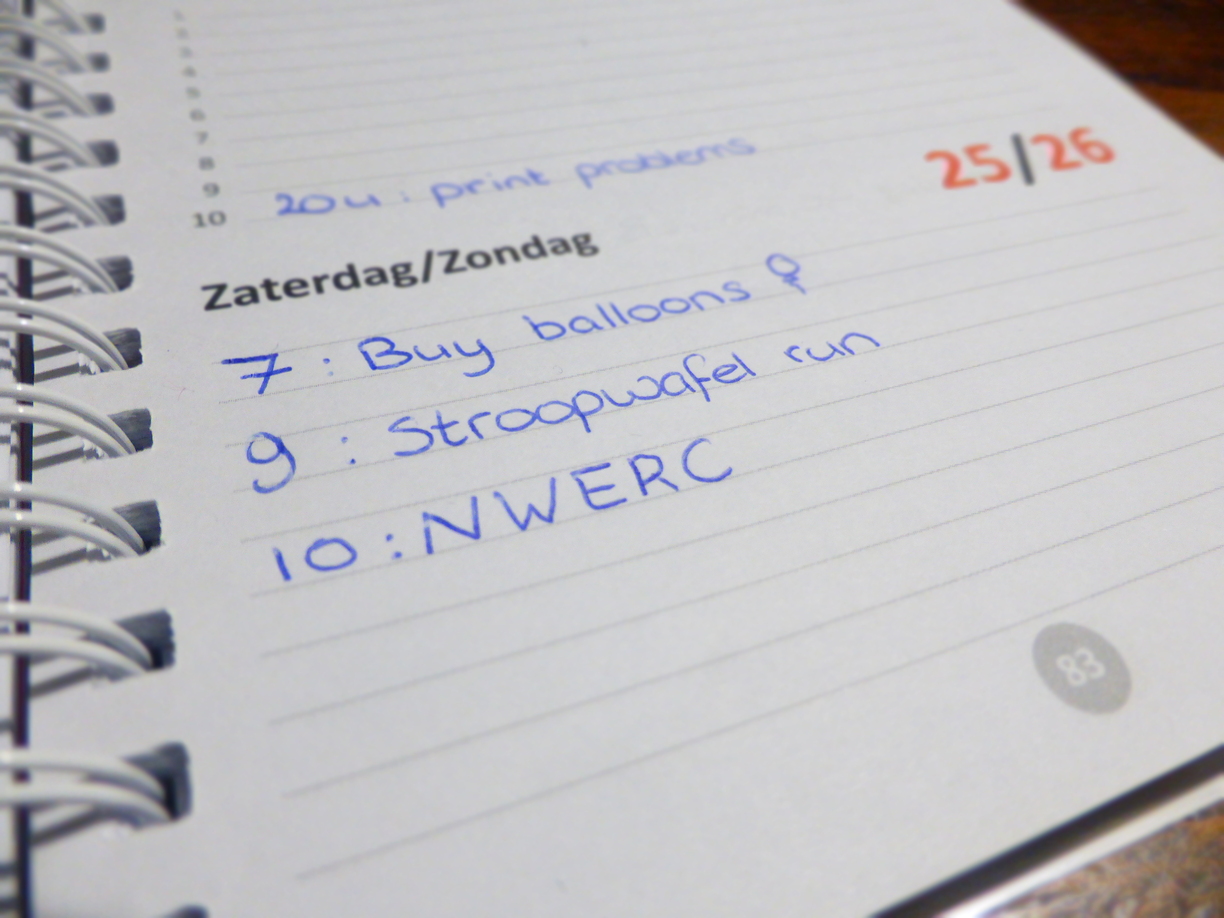 1
2
3
4
5
6
7
8
9
10
20u: print problems
25/26
Zaterdag/Zondag
7: Buy balloons
9: Stroopwafel run
10: NWERC
83